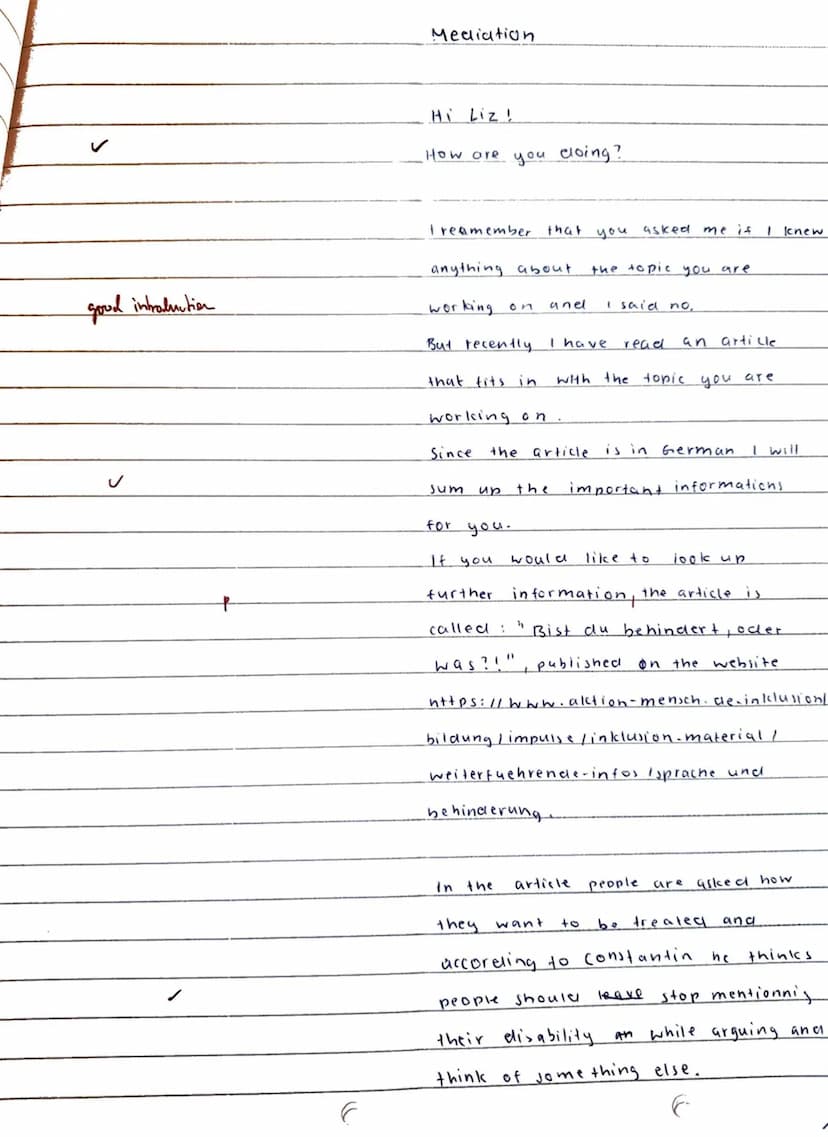 Mediation
Hi Liz!
✓ How are you doing?
I reamember that you asked me if I knew
anything about the topic you are
good introduction working on and I said no.
But recently I have read an article
that fits in with the topic you are
working on.
Since the article is in German I will
✓ sum up the important informations
for you.
If you would like to look up
P further information, the article is
called: "Bist du behindert, oder
was?!", published on the website
https://www.aktion-mensch.de-inklusion/
bildung/impulse/inklusion-material/
weiterfuehrende-infos/sprache und
behinderung.
In the article people are asked how
they want to be treated and
according to Constantin he thinks
✓ people should stop mentionnig
their disability while arguing and
think of something else.